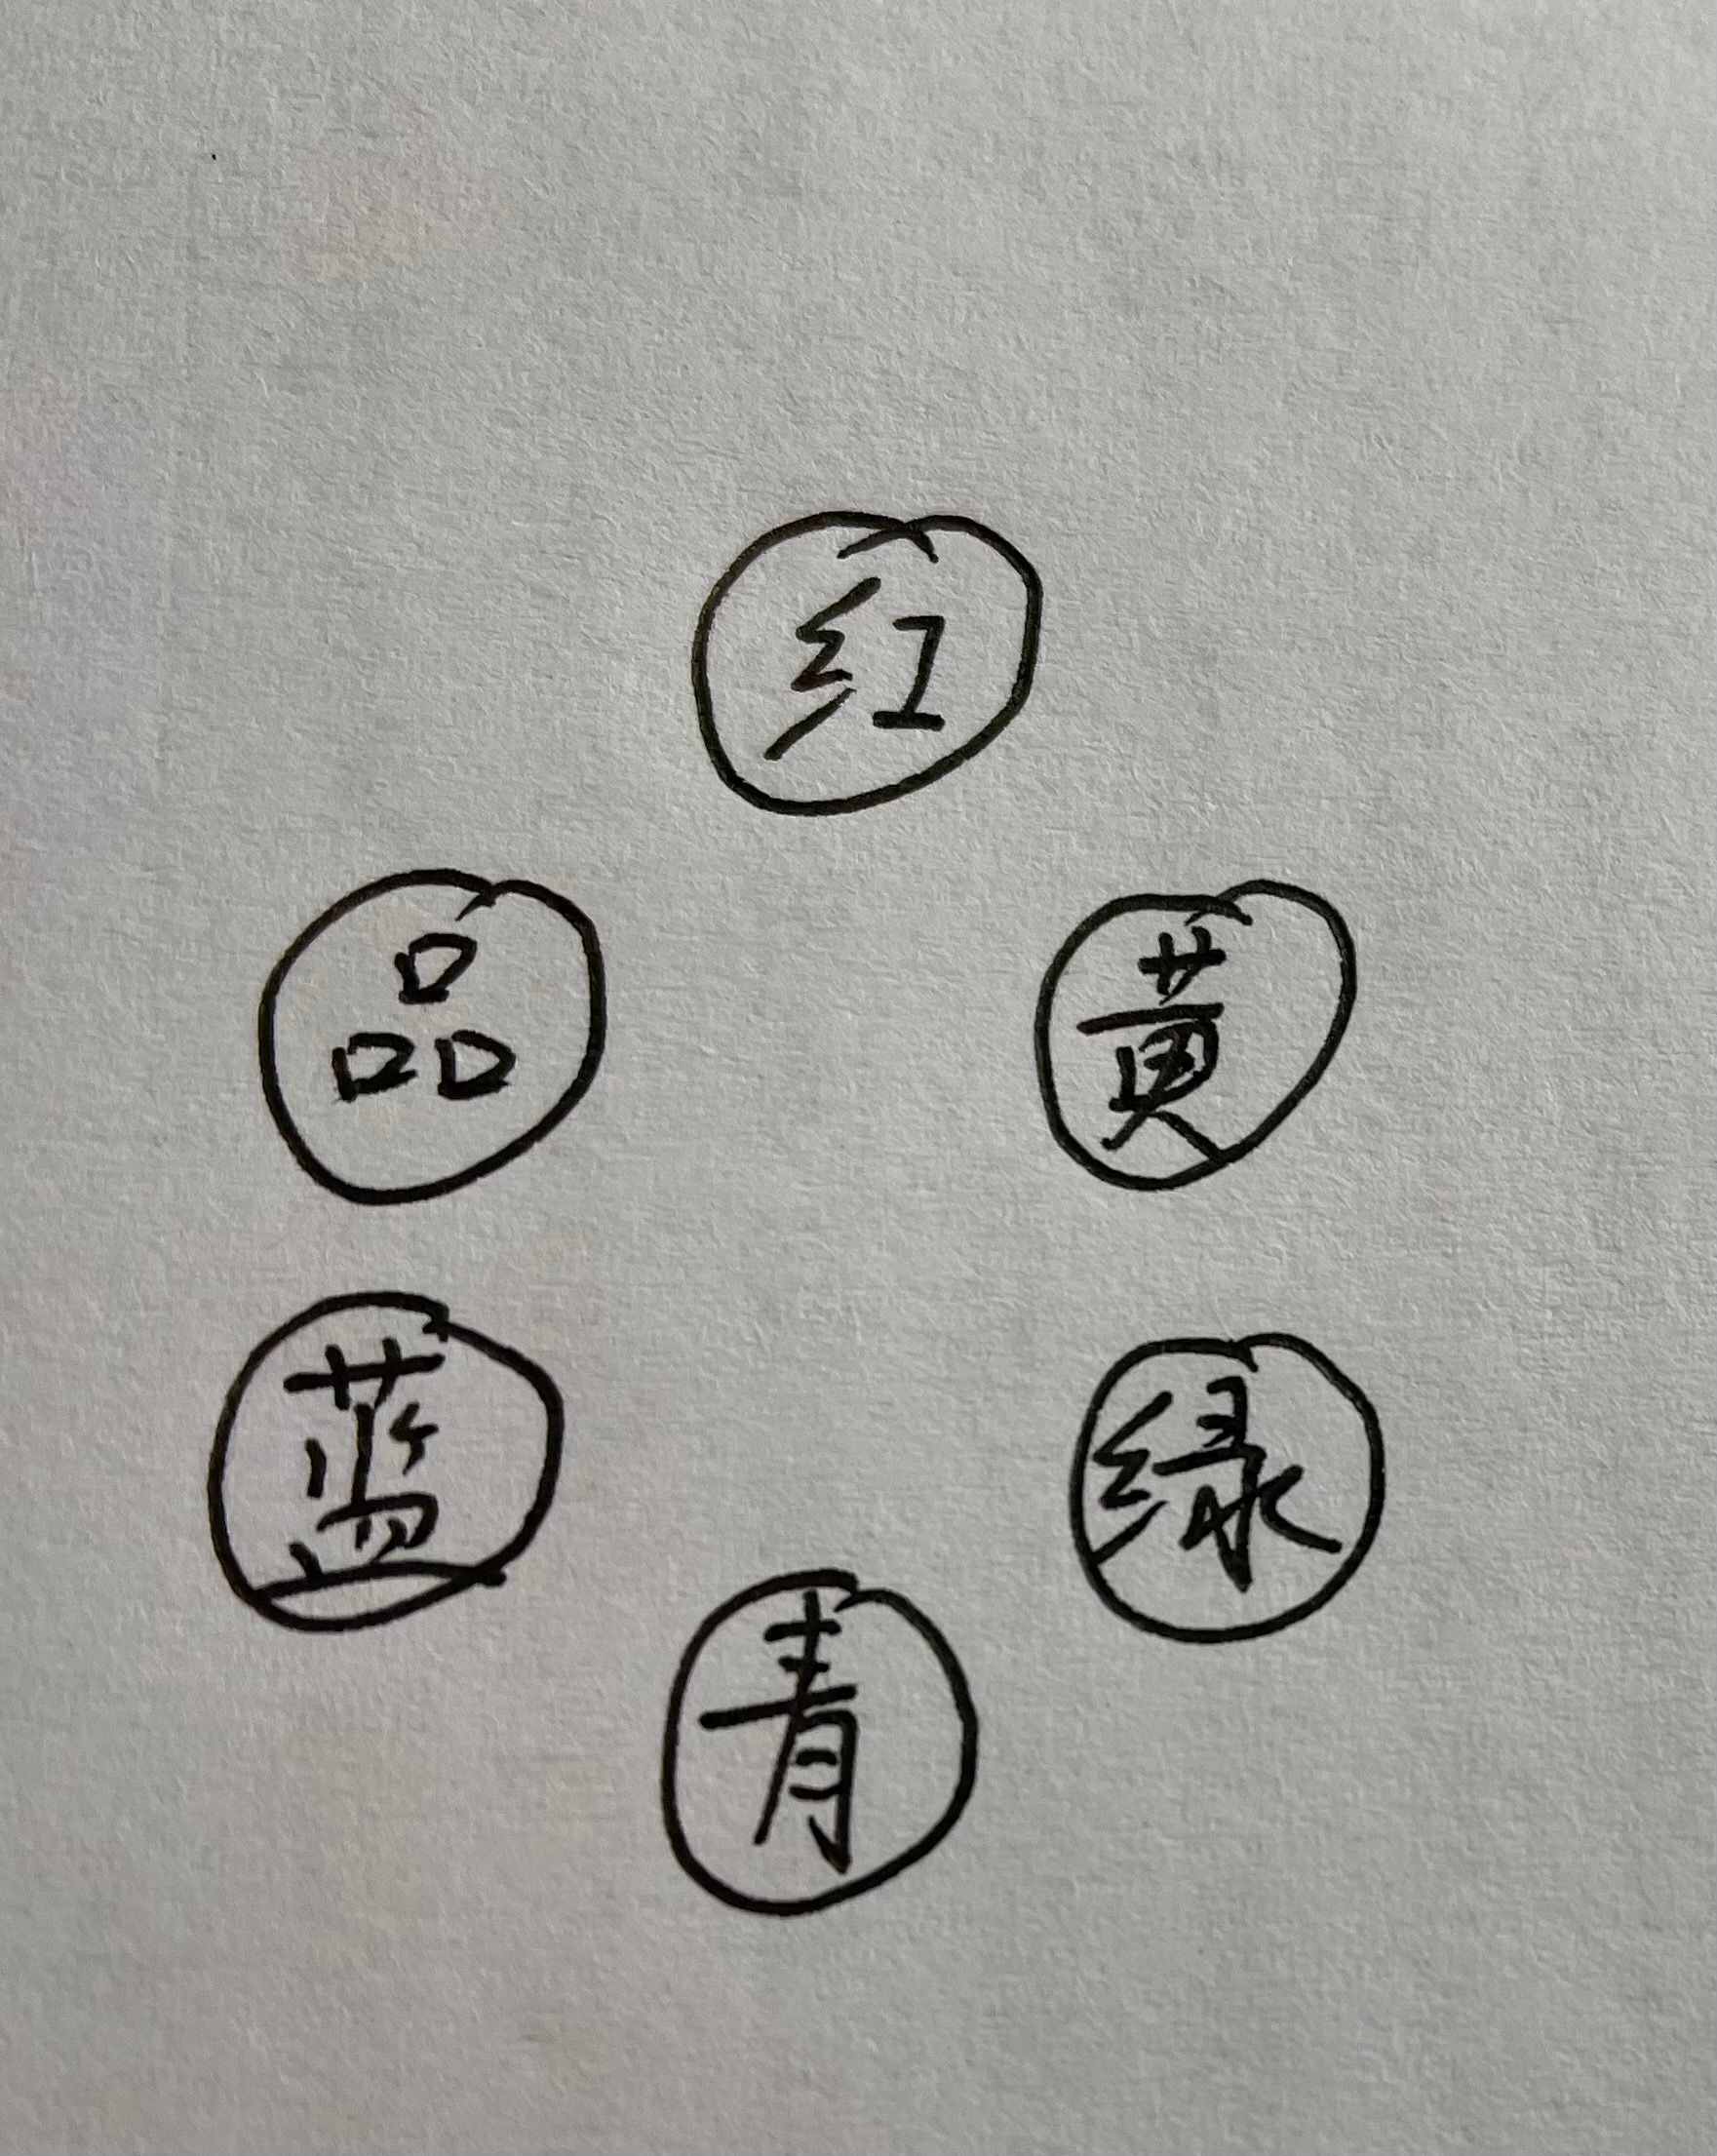 红
品 黄
蓝 绿
青